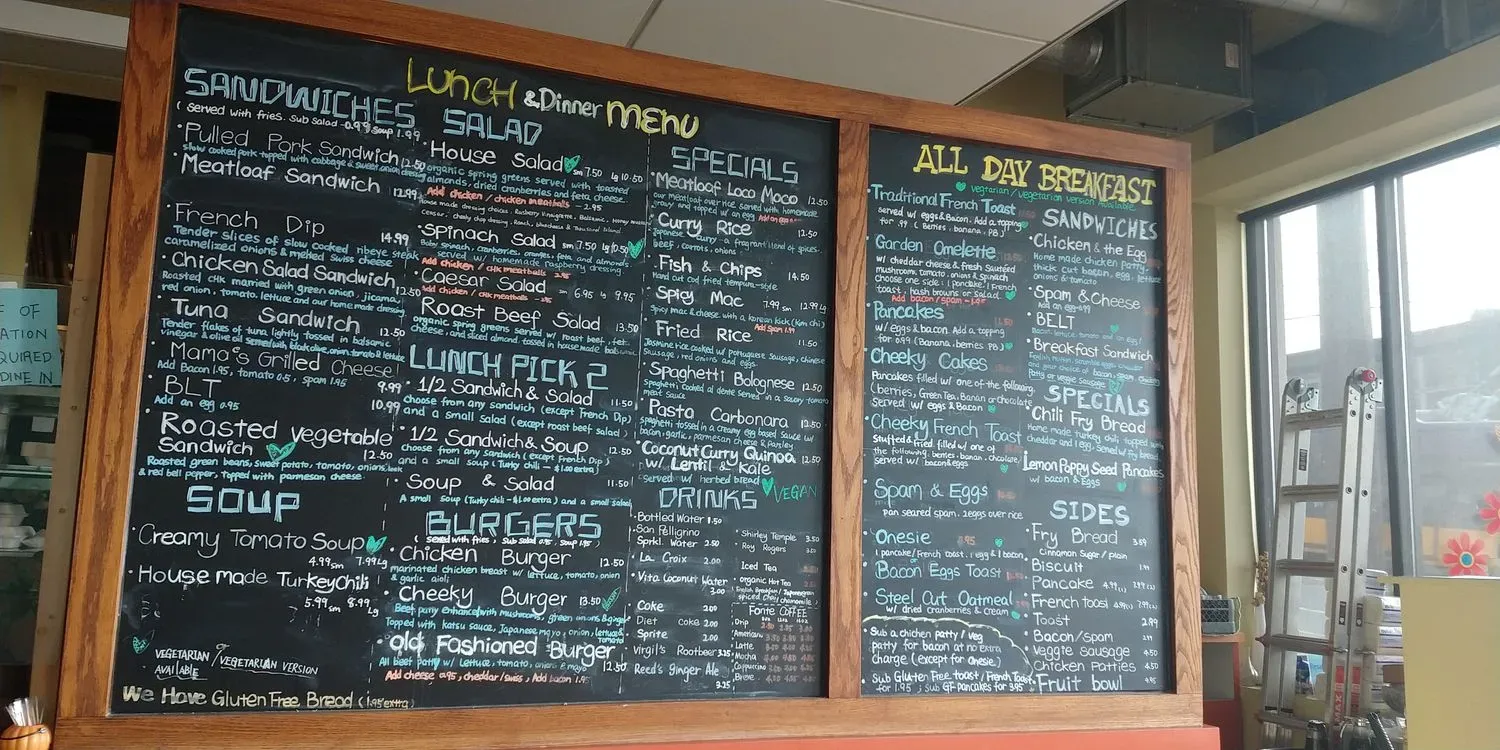 LUNCH & Dinner MENU
SANDWICHES
( served with fries. Sub Salad -0.99 Soup 1.99
Pulled Pork Sandwich 12.50
slow cooked pork topped with cabbage & sweet onion
Meatloaf Sandwich 12.99
French Dip 14.99
Tender slices of slow cooked ribeye steak
caramelized onions & melted Swiss cheese
Chicken Salad Sandwich 12.50
Roasted chk married with green onion, jicama,
red onion, tomato, lettuce and our home made dressing
Tuna Sandwich 12.50
Tender flakes of tuna lightly tossed in balsamic
vinegar & olive oil served with onion, tomato & lettuce
Mama's Grilled Cheese 9.99
Add Bacon 1.95, tomato 0.5, spam 1.95
BLT 10.99
Add an egg 0.95
Roasted vegetable
Sandwich 12.50
Roasted green beans, sweet potato, tomato, onions,
& red bell pepper, topped with parmesan cheese
SOUP
Creamy Tomato Soup
4.99 sm 7.99 Lg
House made Turkey Chili
5.99 sm 8.99 Lg
VEGETARIAN / VEGETARIAN VERSION
AVAILABLE
We Have Gluten Free Bread ( 1.95 extra )
SALAD
House Salad sm 7.50 lg 10.50
organic spring greens served with toasted
almonds, dried cranberries and feta cheese.
Add chicken / chicken meatballs - 2.95
Spinach Salad sm 7.50 lg 10.50
Baby spinach, cranberries, oranges, feta, and almonds
served w/ homemade raspberry dressing
Add chicken / chk meatballs 2.95
Caesar Salad sm 6.95 lg 9.95
Add chicken / chk meatballs - 2.95
Roast Beef Salad 13.50
organic spring greens served w/ roast beef, feta
cheese, and sliced almond, tossed in house made balsamic
LUNCH PICK 2
1/2 Sandwich & Salad 11.50
choose from any sandwich (except French Dip)
and a small salad (except roast beef salad)
1/2 Sandwich & Soup 12.50
choose from any sandwich (except French Dip)
and a small soup (Turky chili - $1.00 extra)
Soup & Salad 11.50
A small soup (Turky chili - $1.00 extra) and a small salad
BURGERS
( served with fries, Sub Salad Soup 1.95 )
Chicken Burger 12.50
marinated chicken breast w/ lettuce, tomato, onion
& garlic aioli
Cheeky Burger 13.50
Beef patty enhanced with mushrooms, green onions & ginger
Topped with katsu sauce, Japanese mayo, onion, lettuce &
tomato
Old Fashioned Burger 12.50
All beef patty w/ lettuce, tomato, onion & mayo
Add cheese 0.95, cheddar/swiss, Add bacon 1.95
SPECIALS
Meatloaf Loco Moco 12.50
our meatloaf over rice served with homemade
gravy and topped w/ an egg
Curry Rice 12.50
Japanese Curry - a fragrant blend of spices,
beef, carrots, onions
Fish & Chips 14.50
Hand cut cod fried tempura-style
Spicy Mac 7.99 sm 12.99 Lg
Spicy mac & cheese with a korean kick (kim chi)
Add Spam 1.99
Fried Rice 11.50
Jasmine rice cooked w/ portuguese Sausage, chinese
Sausage, red onions and eggs
Spaghetti Bolognese 12.50
Spaghetti cooked al dente served in a savory tomato
meat sauce
Pasta Carbonara 12.50
spaghetti tossed in a creamy egg based sauce w/
bacon, garlic, parmesan cheese & parsley
Coconut Curry Quinoa
w/ Lentil & Kale 12.50
served w/ herbed bread VEGAN
DRINKS
Bottled Water 1.50
San Pelligrino
Sprkl. Water 2.50
La Croix 2.00
Vita Coconut Water
3.00
Coke 2.00
Diet coke 2.00
Sprite 2.00
Virgil's Rootbeer 3.25
Reed's Ginger Ale
3.25
Shirley Temple 3.50
Roy Rogers
Iced Tea
organic Hot Tea
English Breakfast / Japanese green
spiced chai, chamomile
Fonte COFFEE
Drip
Americano
Latte
Mocha
Cappuccino
Breve
ALL DAY BREAKFAST
vegtarian/vegetarian version Available
Traditional French Toast
served w/ eggs & Bacon. Add a topping
for .99 ( Berries, banana, PB )
Garden Omelette
w/ cheddar cheese & fresh sauteed
mushroom, tomato, onions & spinach
choose one side: 1 pancake, 1 french
toast, hash browns or salad
Add bacon/spam - 1.95
Pancakes
w/ eggs & bacon. Add a topping
for 0.99 (Banana, berries, PB)
Cheeky Cakes
Pancakes filled w/ one of the following
(berries, Green Tea, Banan or chocolate
Served w/ eggs & Bacon
Cheeky French Toast
Stuffed & fried, filled w/ one of
the following: berries, banana, chocolate,
served w/ bacon & eggs
Spam & Eggs
Pan seared spam, 2 eggs over rice
Onesie 8.95
1 pancake/French toast, 1 egg & 1 bacon
Bacon Eggs Toast
Steel Cut Oatmeal
w/ dried cranberries & cream
Sub a chicken patty / veg
patty for bacon at no extra
charge (except for Onesie)
Sub Gluten Free toast / French Toast
for 1.95, Sub GF pancakes for 3.95
SANDWICHES
Chicken & the Egg
Home made chicken patty,
thick cut bacon, egg, lettuce
onions & tomato
Spam & Cheese
Add an egg 0.99
BELT
Bacon, lettuce, tomato and egg!
Breakfast Sandwich
and your choice of bacon, spam, chicken
Patty or veggie Sausage
SPECIALS
Chili Fry Bread
Home made turkey chili, topped with
cheddar and 1 egg, Served w/ fry bread
Lemon Poppy Seed Pancakes
w/ bacon & Eggs
SIDES
Fry Bread 3.89
Cinnamon Sugar / plain
Biscuit
Pancake 4.99 (1) 7.99 (2)
French toast 4.99 (1) 7.99 (2)
Toast 2.99
Bacon/spam
Veggie sausage 4.50
Chicken Patties 4.50
Fruit bowl 4.95
OF
QUIRED
DINE IN